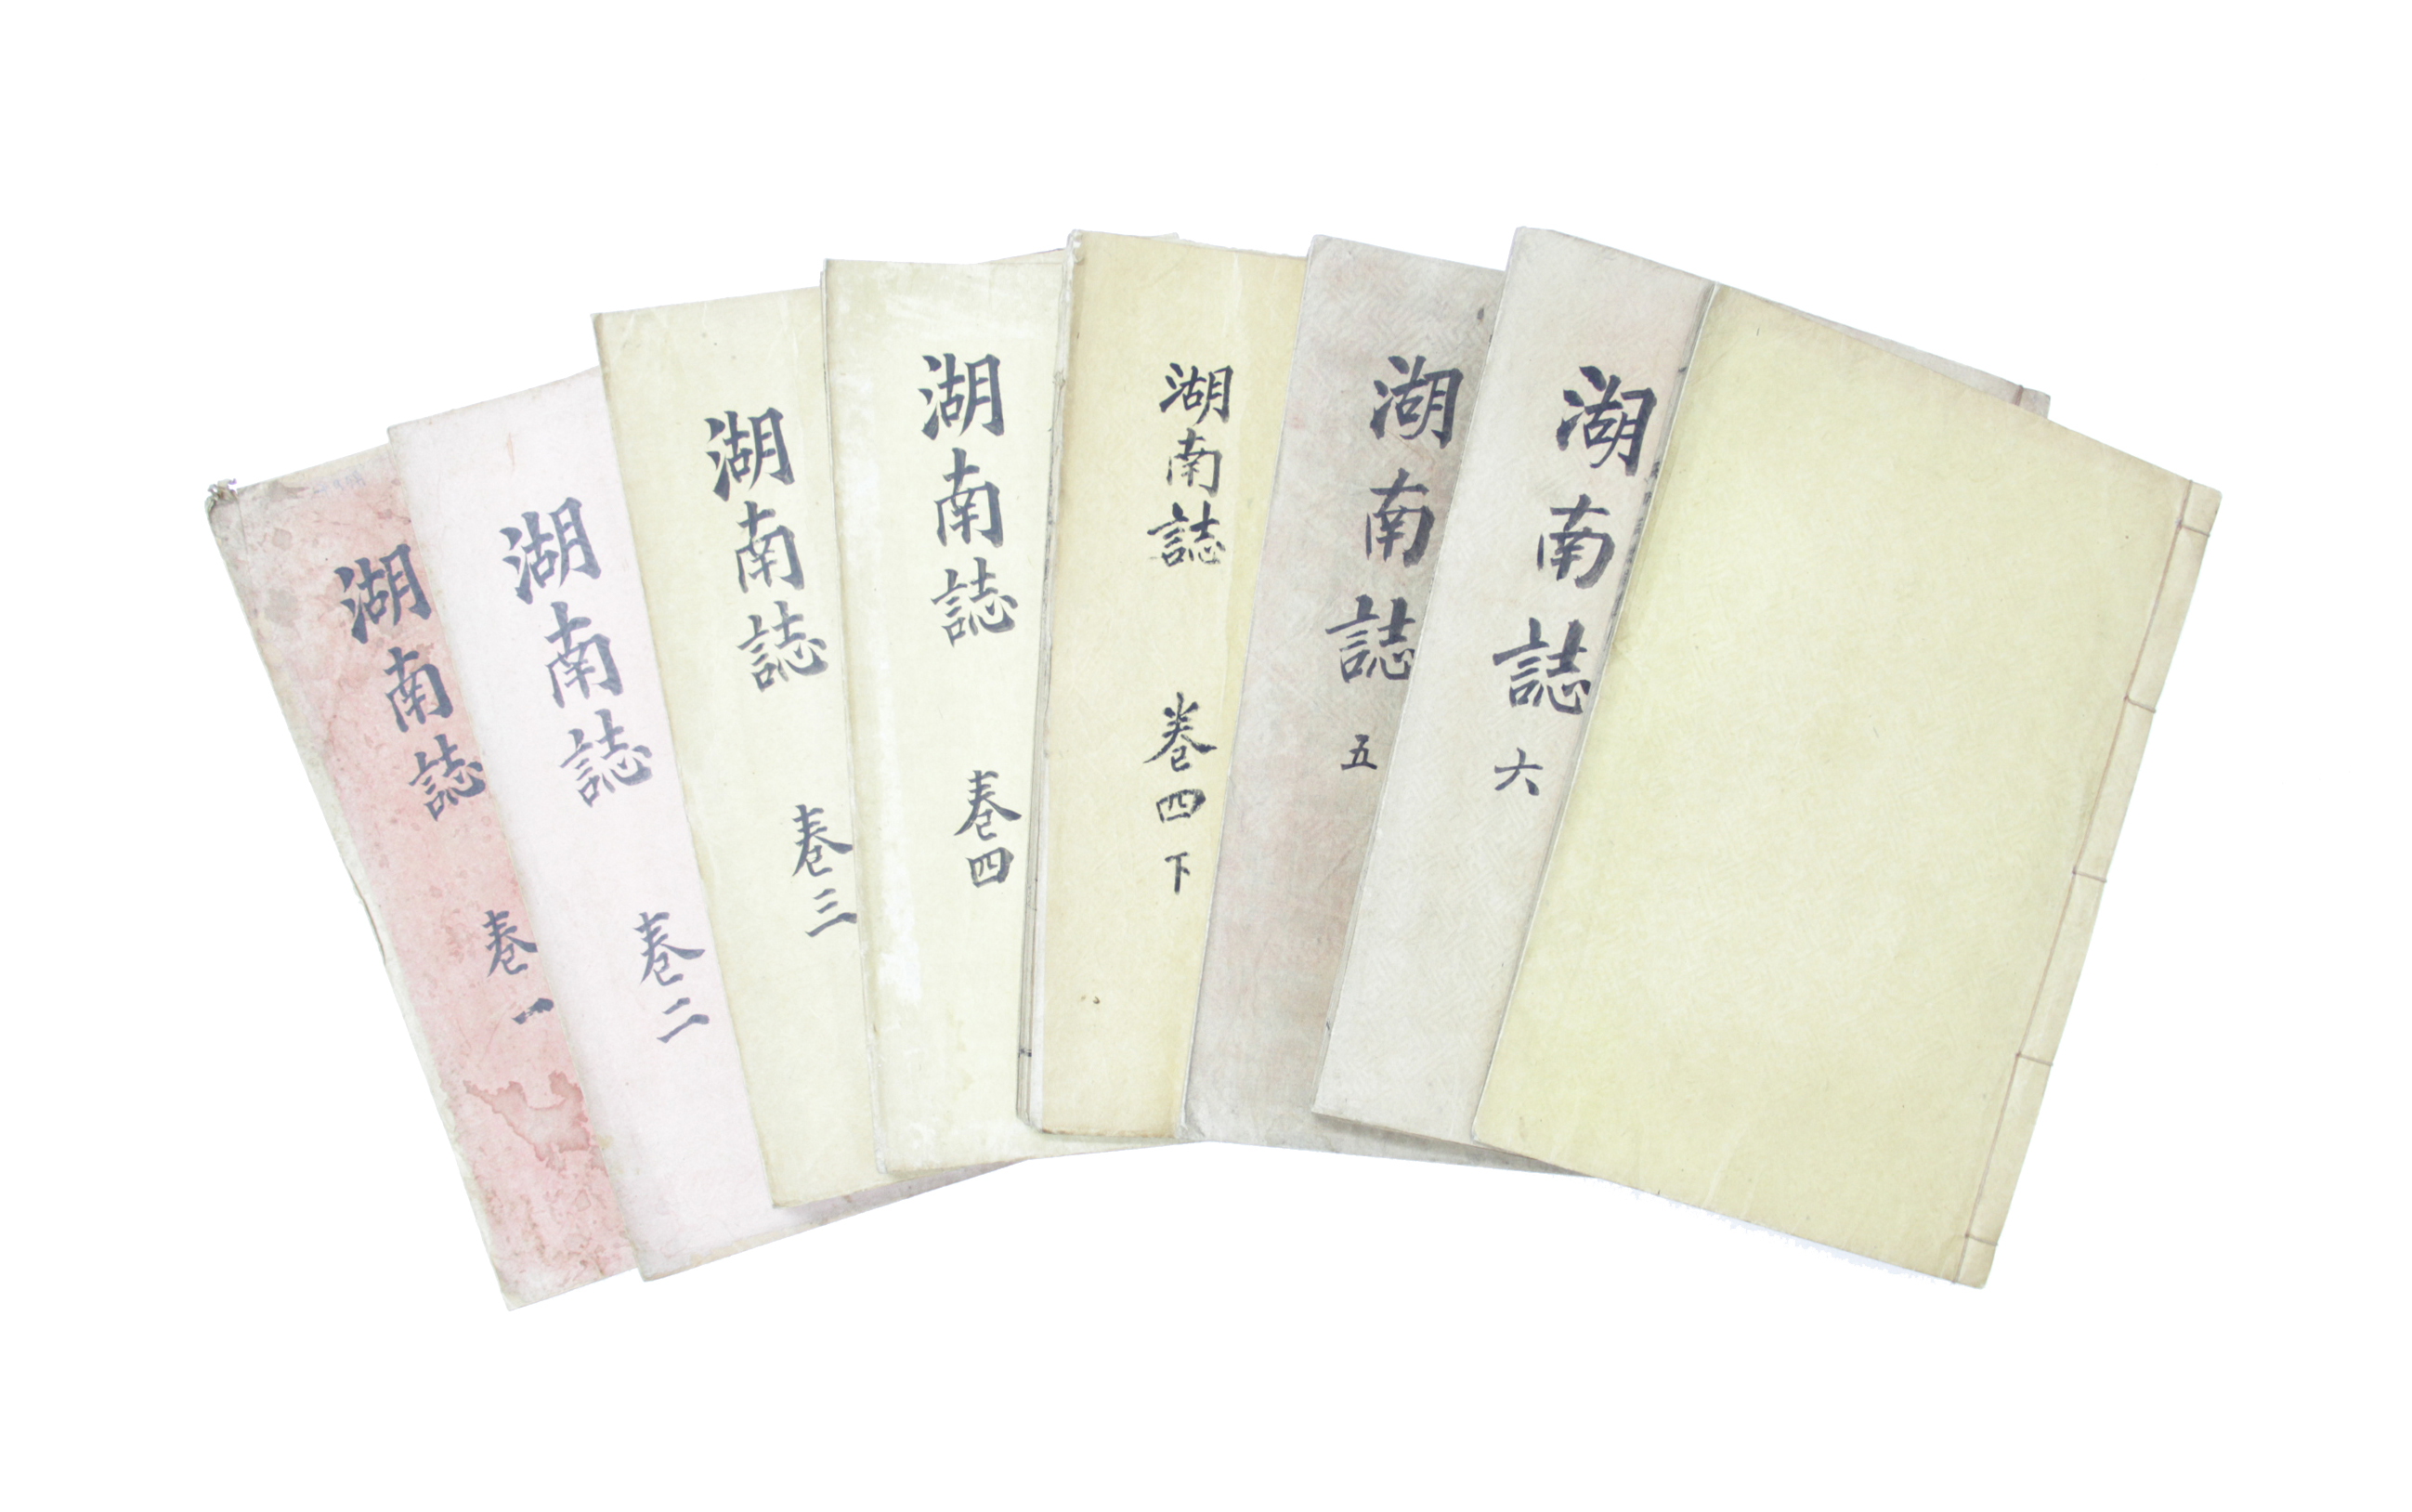 湖南誌 卷一
湖南誌 卷二
湖南誌 卷三
湖南誌 卷四
湖南誌 卷四下
湖南誌 五
湖南誌 六